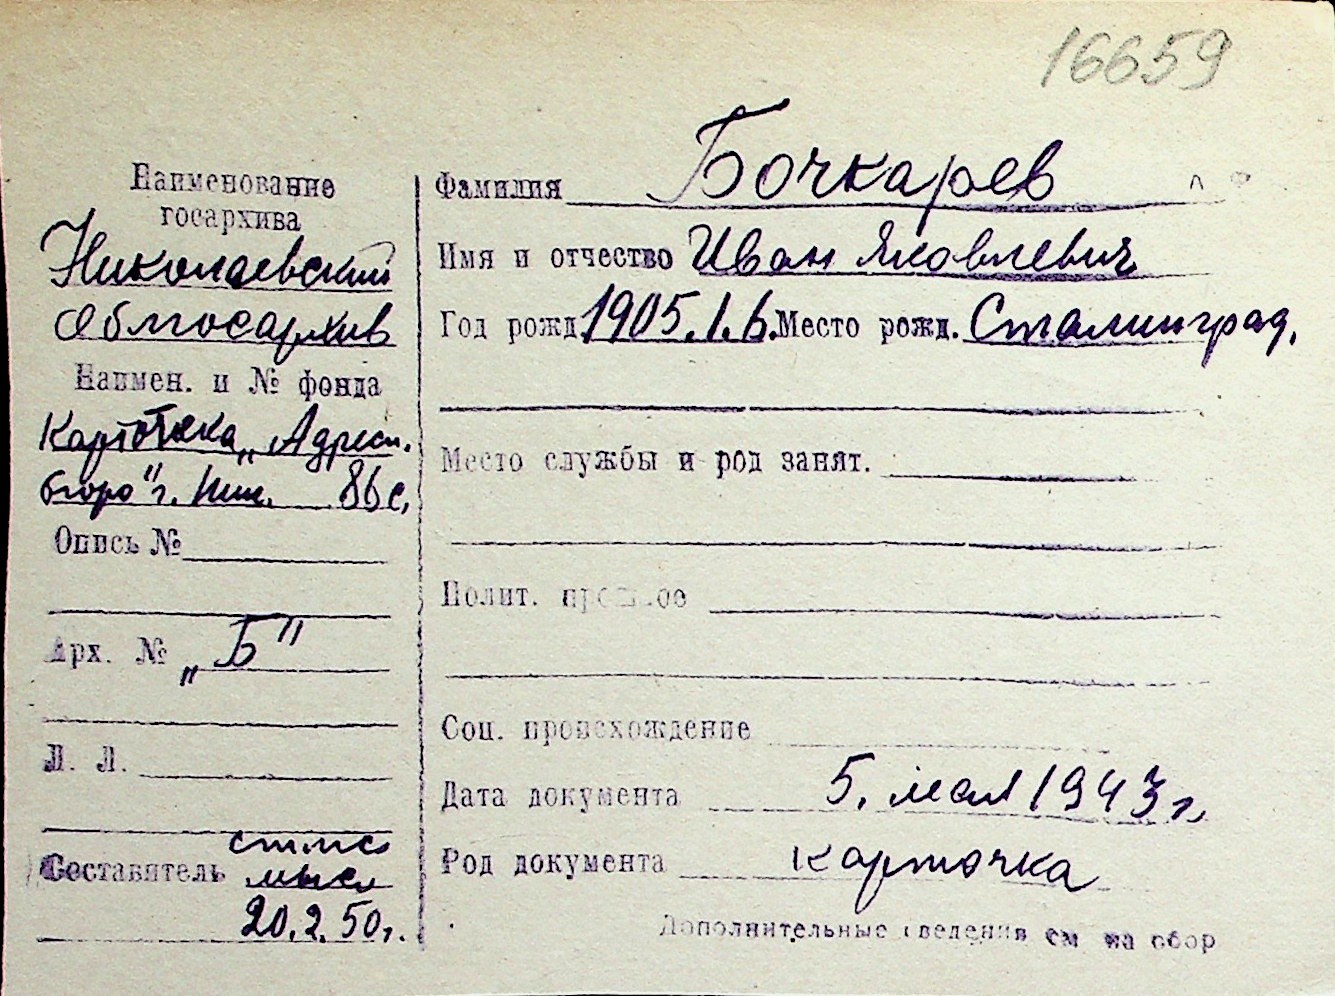 16659
Наименование
госархива
Николаевский
Облгосархив
Наимен. и № фонда
Картотека „Адресн.
бюро" г. Ник. 86 с.
Опись №
Арх. № „Б"
Л. Л.
Составитель
20.2.50г.
Фамилия Бочкарев
Имя и отчество Иван Яковлевич
Год рожд. 1905.1.6. Место рожд. Сталинград.
Место службы и род занят.
Полит. прошлое
Соц. происхождение
Дата документа 5. мая 1943 г.
Род документа карточка
Дополнительные сведения см на обор